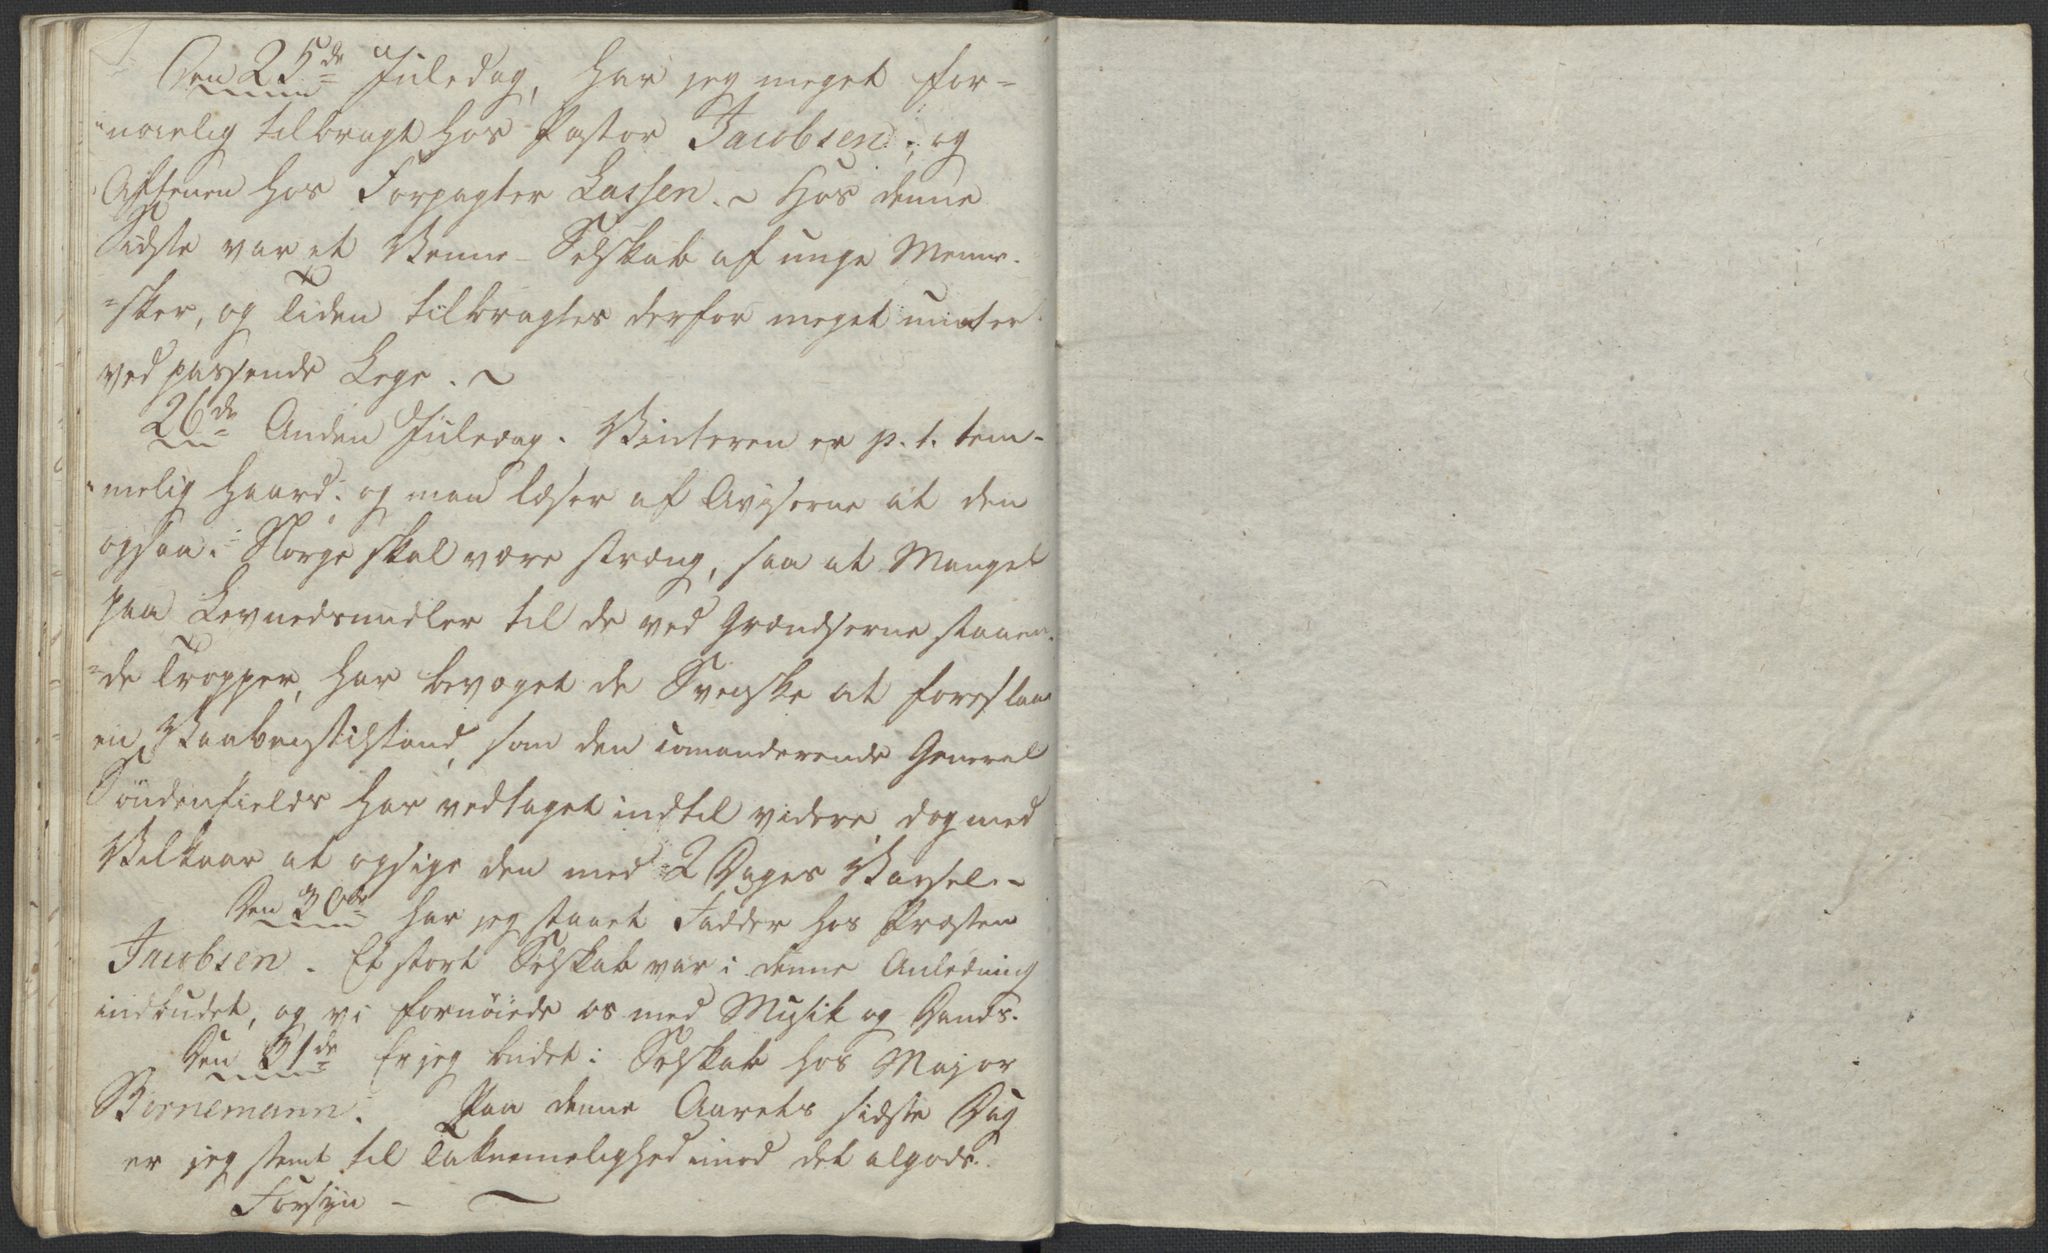 Den 25de Juledag, har jeg meget for-
nøielig tilbragt hos Pastor Jacobsen; og
Aftenen hos Forpagter Lassen. ~ Hos denne
Sidste var et Venne-Selskab af unge Menne-
=sker, og Tiden tilbragtes derfor meget munter
ved passende Lege. ~
26de Anden Juledag. Vinteren er p. t. tem-
melig haard; og man læser af Aviserne at den
ogsaa i Norge skal være stræng, saa at Mangel
paa Levnedsmidler til de ved Grændserne staaen-
=de Tropper, har bevæget de Svenske at foreslaae
en Vaabenstilstand, som den comanderende General
Søndenfields har vedtaget indtil videre, dog med
Vilkaar at opsige den med 2 Dages Varsel. ~
Den 30de har jeg staaet Fadder hos Præsten
Jacobsen. Et stort Selskab var i denne Anledning
indbudet, og vi fornøiede os med Musik og Dands.
Den 31de Er jeg budet i Selskab hos Major
Bornemann. Paa denne Aarets sidste Dag
er jeg stemt til Taknemelighed imod det algode
Forsyn - ~